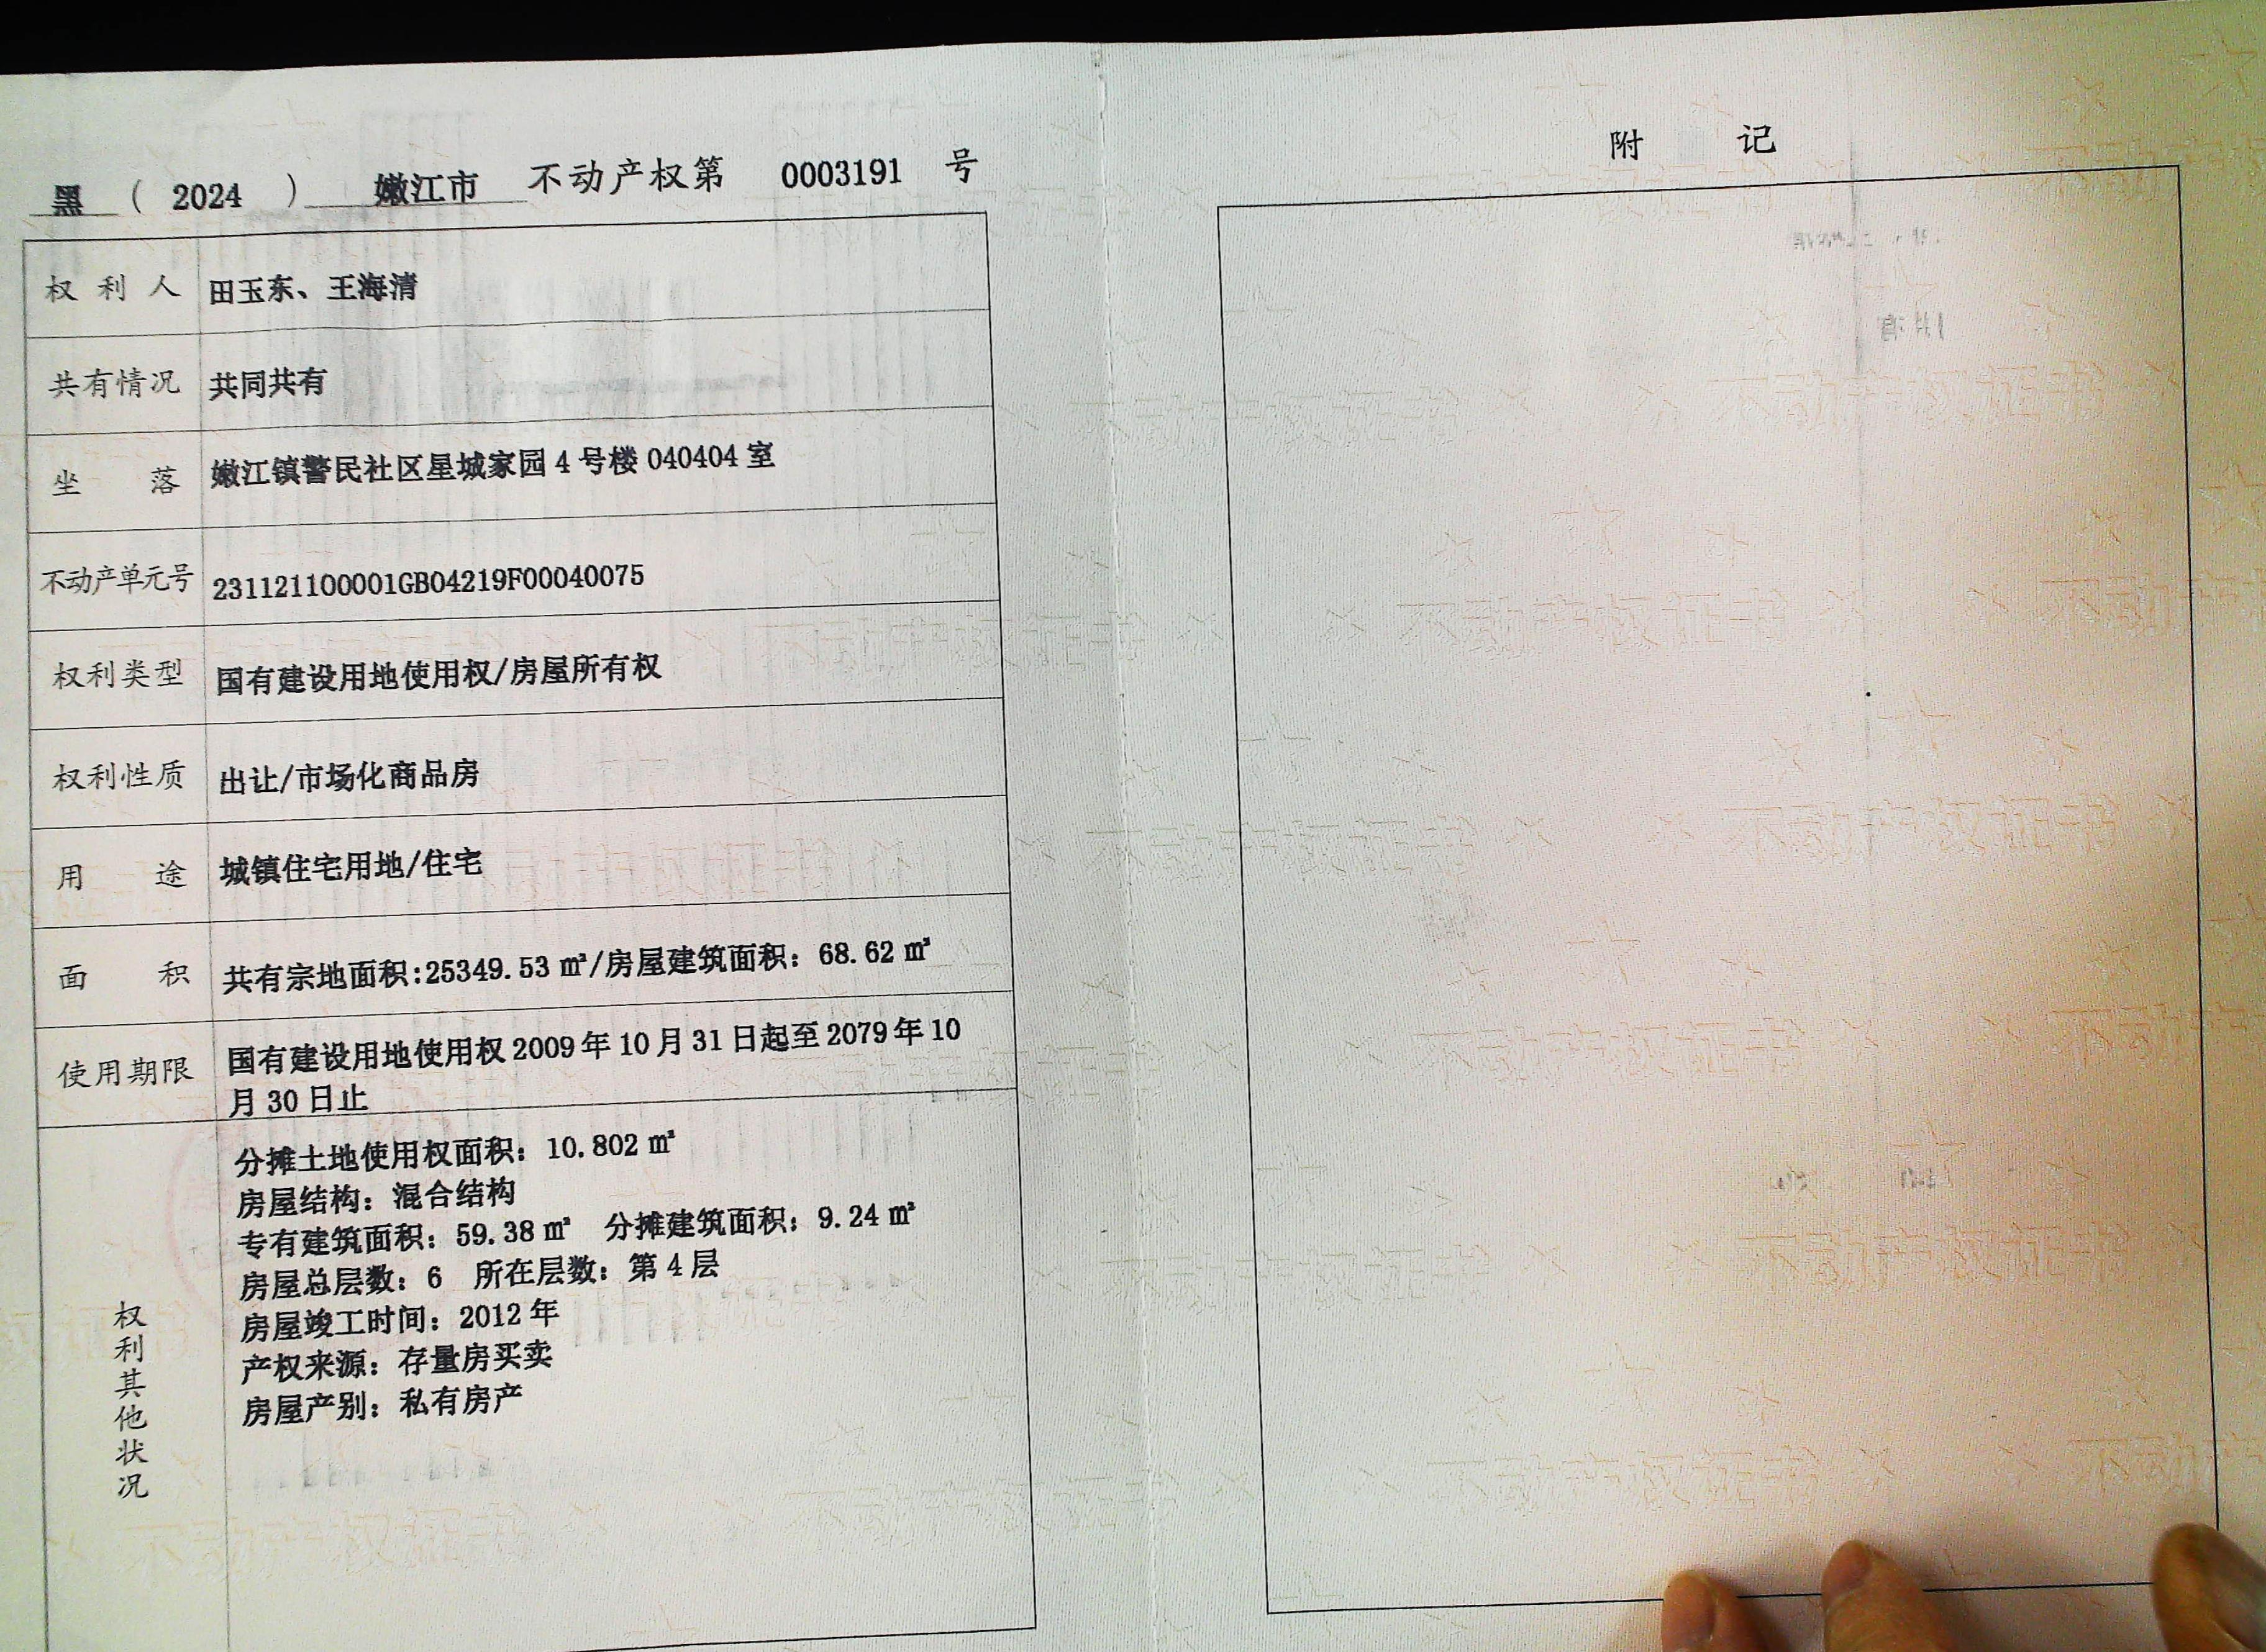 黑 ( 2024 ) 嫩江市 不动产权第 0003191 号
权利人 田玉东、王海清
共有情况 共同共有
坐落 嫩江镇警民社区星城家园4号楼040404室
不动产单元号 231121100001GB04219F00040075
权利类型 国有建设用地使用权/房屋所有权
权利性质 出让/市场化商品房
用途 城镇住宅用地/住宅
面积 共有宗地面积:25349.53㎡/房屋建筑面积:68.62㎡
使用期限 国有建设用地使用权2009年10月31日起至2079年10
月30日止
权利其他状况
分摊土地使用权面积:10.802㎡
房屋结构:混合结构
专有建筑面积:59.38㎡ 分摊建筑面积:9.24㎡
房屋总层数:6 所在层数:第4层
房屋竣工时间:2012年
产权来源:存量房买卖
房屋产别:私有房产
附记